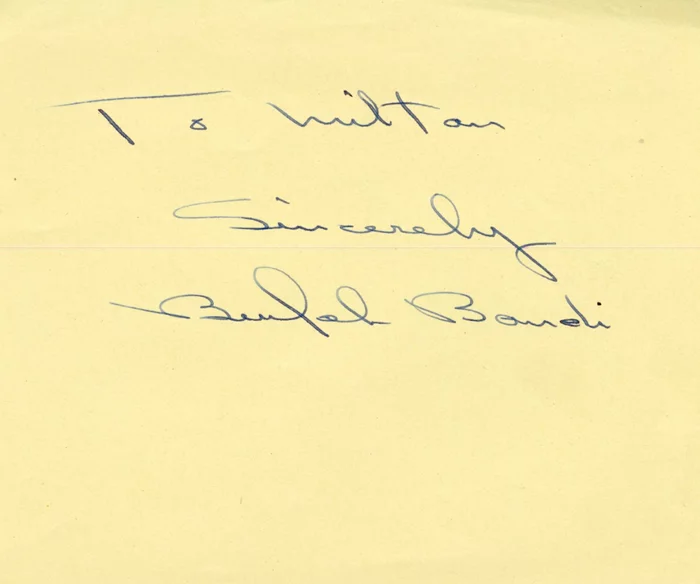 To Milton
Sincerely
Beulah Bondi